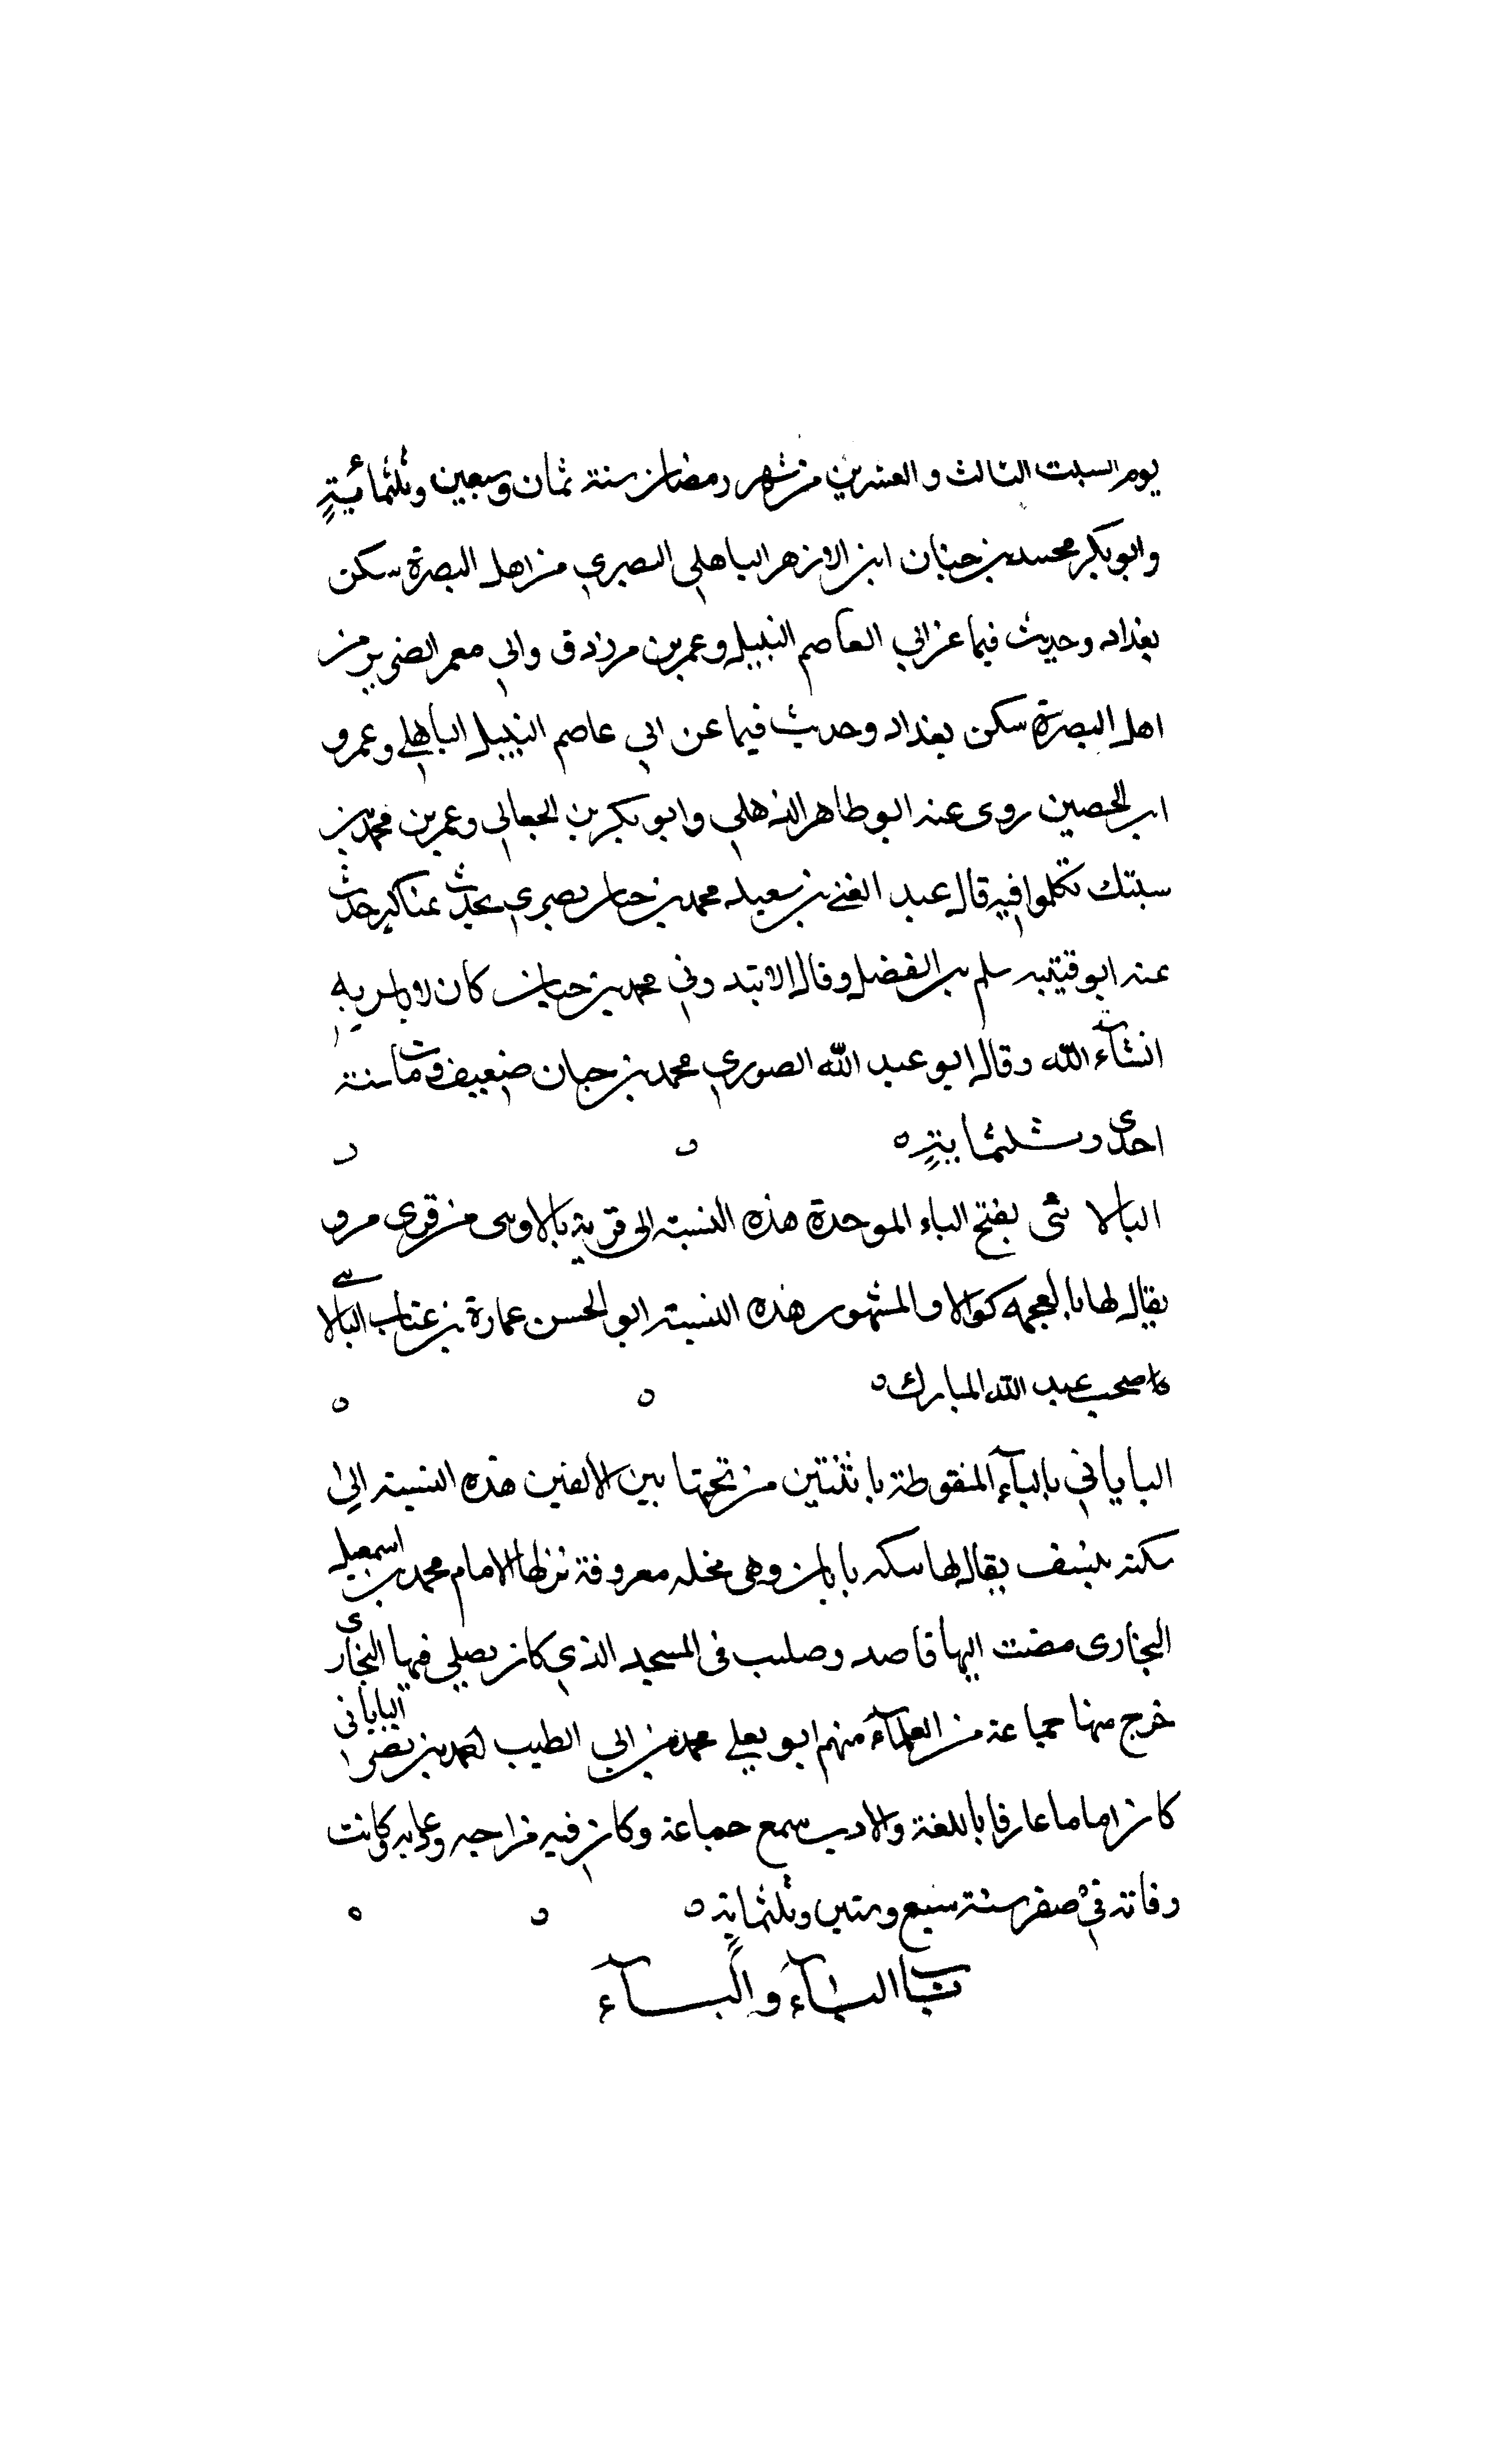 يوم السبت الثالث والعشرين من شهر رمضان سنة ثمان وسبعين وثلثمائية
وابو بكر محمد بن حبان ابن الازهر الباهلي البصري من اهل البصرة سكن
بغداد وحديث فيما عن ابي العاصم النبيل وعمر بن مرزدق وابي معمر الضرير من
اهل البصرة سكن بغداد وحديث فيما عن ابي عاصم النبيل الباهلي وعمرو
ابن الحصين روى عنه ابو طاهر الذهلي وابو بكر بن الجعابي وعمر بن محمد بن
سبنك تكلموا فيه قال عبد الغني بن سعيد محمد بن حبان بصري يحدث بمناكير حدث
عنه ابو قتيبه سلم بن الفضل وقال الابندوني محمد بن حبان كان لا باس به
انشآء الله وقال ابو عبد الله الصوري محمد بن حبان ضعيف ومات سنة
احدى وثلثماية
البالا ئى بفتح الباء الموحدة هذه النسبة الى قرية بالاوهى من قرى مرو
يقال لها بالعجميه كوالا والمشهور هذه النسبة ابو الحسن عمارة بن عتاب البالائى
صحب عبد الله المبارك
الباياني بالبآء المنقوطة باثنتين من تحتها بين الالفين هذه النسبة الى
سكة بنسف يقال لها سكه بايان وهى محله معروفة نزلها الامام محمد بن اسمعيل
البخارى مضت اليها قاصد وصليت فى المسجد الذي كان يصلي فيها البخارى
خرج منها جماعة من العلمآء منهم ابو يعلي محمد بن ابي الطيب احمد بن نصر الباياني
كان اماما عارفا باللغة والادب سمع جماعة وكان فيه مزاحه ودعابه وكانت
وفاته في صفر سنة سبع وستين وثلثماية
باب البآء والبآء